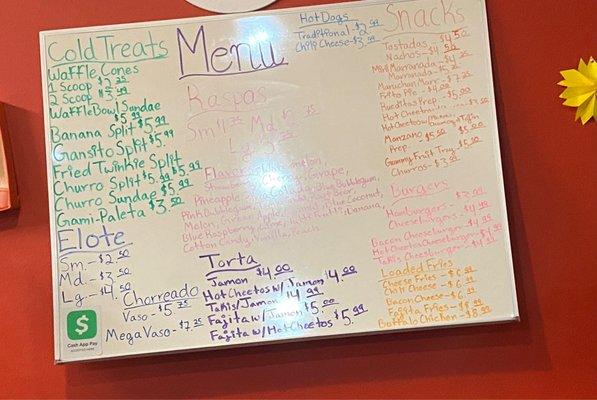 Cold Treats
Waffle Cones
1 Scoop $2.25
2 Scoop $3.49
Waffle Bowl Sundae
$5.99
Banana Split $5.99
Gansito Split $5.99
Fried Twinkie Split
$5.99
Churro Split $5.99
Churro Sundae $5.99
Gami-Paleta $3.50
Elote
Sm. - $2.50
Md. - $3.50
Lg. - $4.50
Chorreado
Vaso - $5.75
Mega Vaso - $7.25
Cash App Pay
Menu
Raspas
Sm
Md.
Lg.
Flavors
Grape,
Pineapple
Blue Bubblegum,
Pink Bubblegum
Blue Coconut,
Melon,
Banana,
Blue Raspberry, Lime,
Cotton Candy, Vanilla, Peach
Torta
Jamon $4.00
Hot Cheetos w/ Jamon $4.00
Takis/Jamon $4.99
Fajita w/ Jamon $5.00
Fajita w/ Hot Cheetos $5.99
Hot Dogs
Traditional - $2.99
Chili Cheese - $3.99
Snacks
Tostadas $4.50
Nachos - $4.50
Mini Marranada - $4.25
Marranada
Maruchan Mar - $7.25
Frito Pie - $4.00
Rueditas Prep. $5.00
Hot Cheetos
Manzano
Prep - $5.50
$5.00
Gummy Fruit Tray $5.50
Churros - $3.99
Burgers
Hamburgers - $3.99
Cheeseburgers - $4.99
Bacon Cheeseburger - $4.99
Hot Cheetos Cheeseburger - $4.99
Takis Cheeseburger - $4.99
Loaded Fries
Cheese Fries - $6.99
Chili Cheese - $6.99
Bacon Cheese - $6.99
Fajita Fries - $8.99
Buffalo Chicken - $8.99